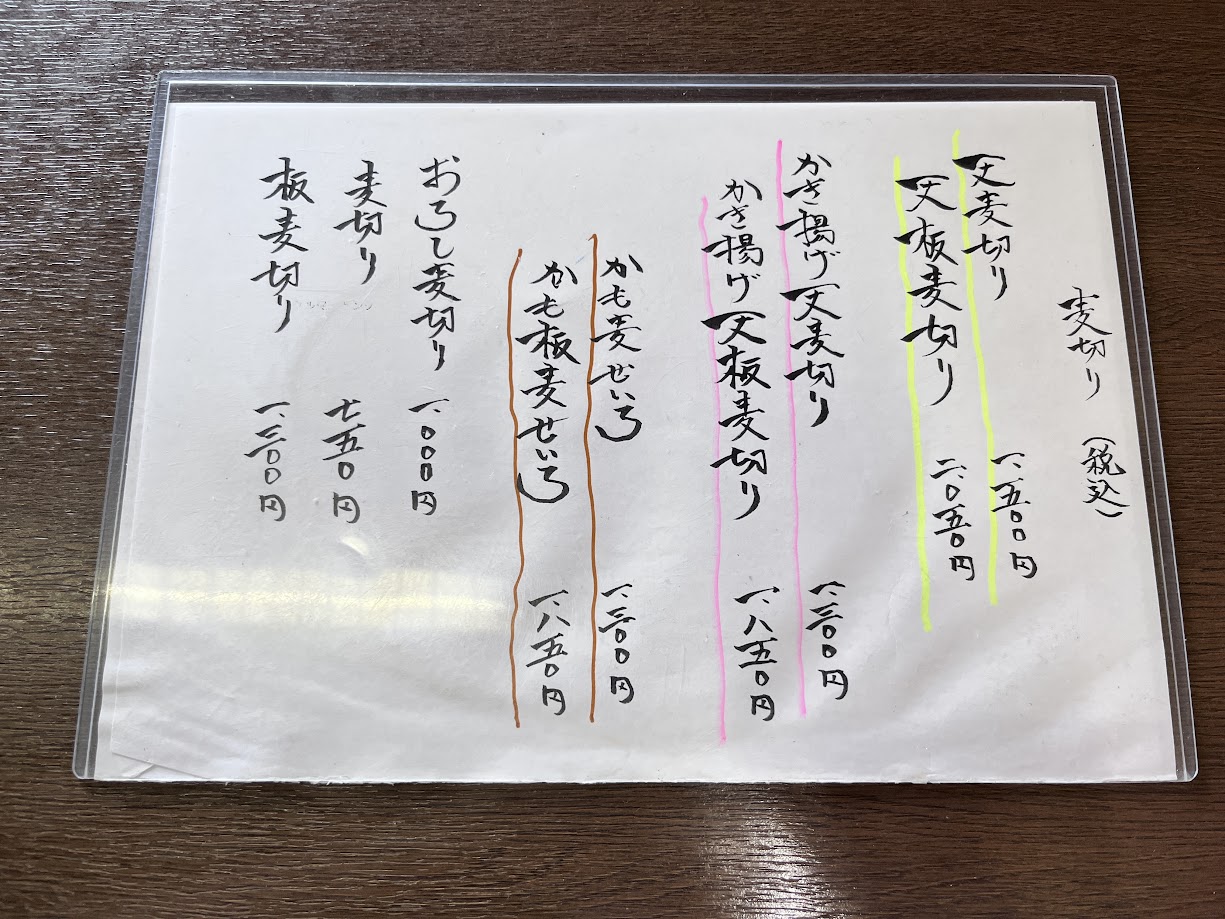 麦切り (税込)
天麦切り 一、五〇〇円
天板麦切り 二、〇五〇円
かき揚げ天麦切り 一、三〇〇円
かき揚げ天板麦切り 一、八五〇円
かも麦せいろ 一、三〇〇円
かも板麦せいろ 一、八五〇円
おろし麦切り 一、〇〇〇円
麦切り 七五〇円
板麦切り 一、三〇〇円